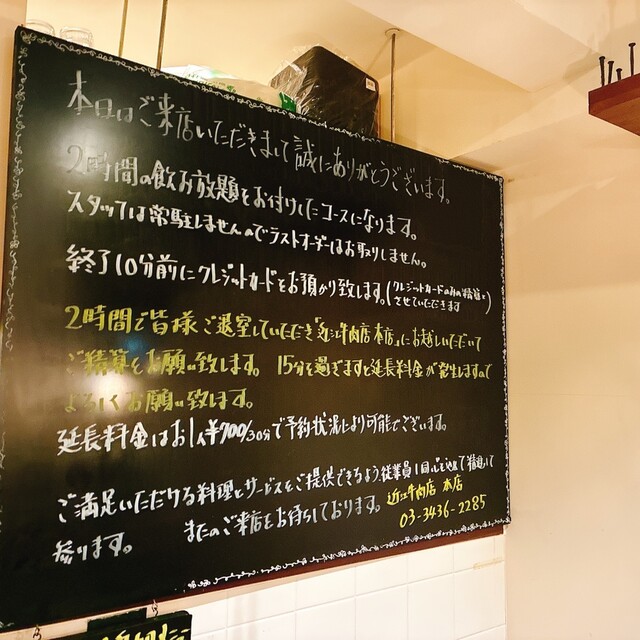 本日はご来店いただきまして誠にありがとうございます。
2時間の飲み放題をお付けしたコースになります。
スタッフは常駐しませんのでラストオーダーはお取りしません。
終了10分前にクレジットカードをお預かり致します。(クレジットカードのみの精算とさせていただきます)
2時間で皆様ご退室していただき「近江牛肉店本店」にお越しいただいて
ご精算をお願い致します。 15分を過ぎますと延長料金が発生しますので
よろしくお願い致します。
延長料金はお1人¥700/30分で予約状況により可能でございます。
ご満足いただける料理とサービスをご提供できるよう従業員1同心を込めて精進して
参ります。 またのご来店をお待ちしております。
近江牛肉店 本店
03-3436-2285